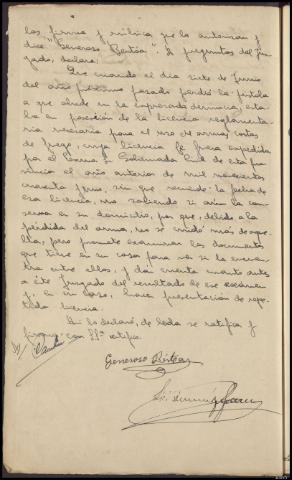 las firma y rúbrica que lo autorizan y
dice "Generoso Bertoa". A preguntas del Juz-
gado, declara:
Que cuando el día siete de Junio
del año próximo pasado perdió la pistola
a que alude en la expresada denuncia, esta-
ba en posesión de la licencia reglamenta-
ria necesaria para el uso de armas cortas
de fuego, cuya licencia le fuera expedida
por el Gobierno Civil de esta pro-
vincia el año anterior de mil novecientos
cuarenta y uno, sin que recuerde la fecha de
esa licencia, no sabiendo si aún la con-
serva en su domicilio, porque, debido a la
pérdida del arma, no se cuidó más de aque-
lla, pero promete examinar los documentos
que tiene en su casa para ver si la encuen-
tra entre ellos, y dar cuenta cuanto antes
a éste Juzgado del resultado de ese examen
y, en su caso, hacer presentación de repe-
tida licencia.
Así lo declaró, de leída se ratifica y
firma con SSª certifico.
Generoso Bértoa